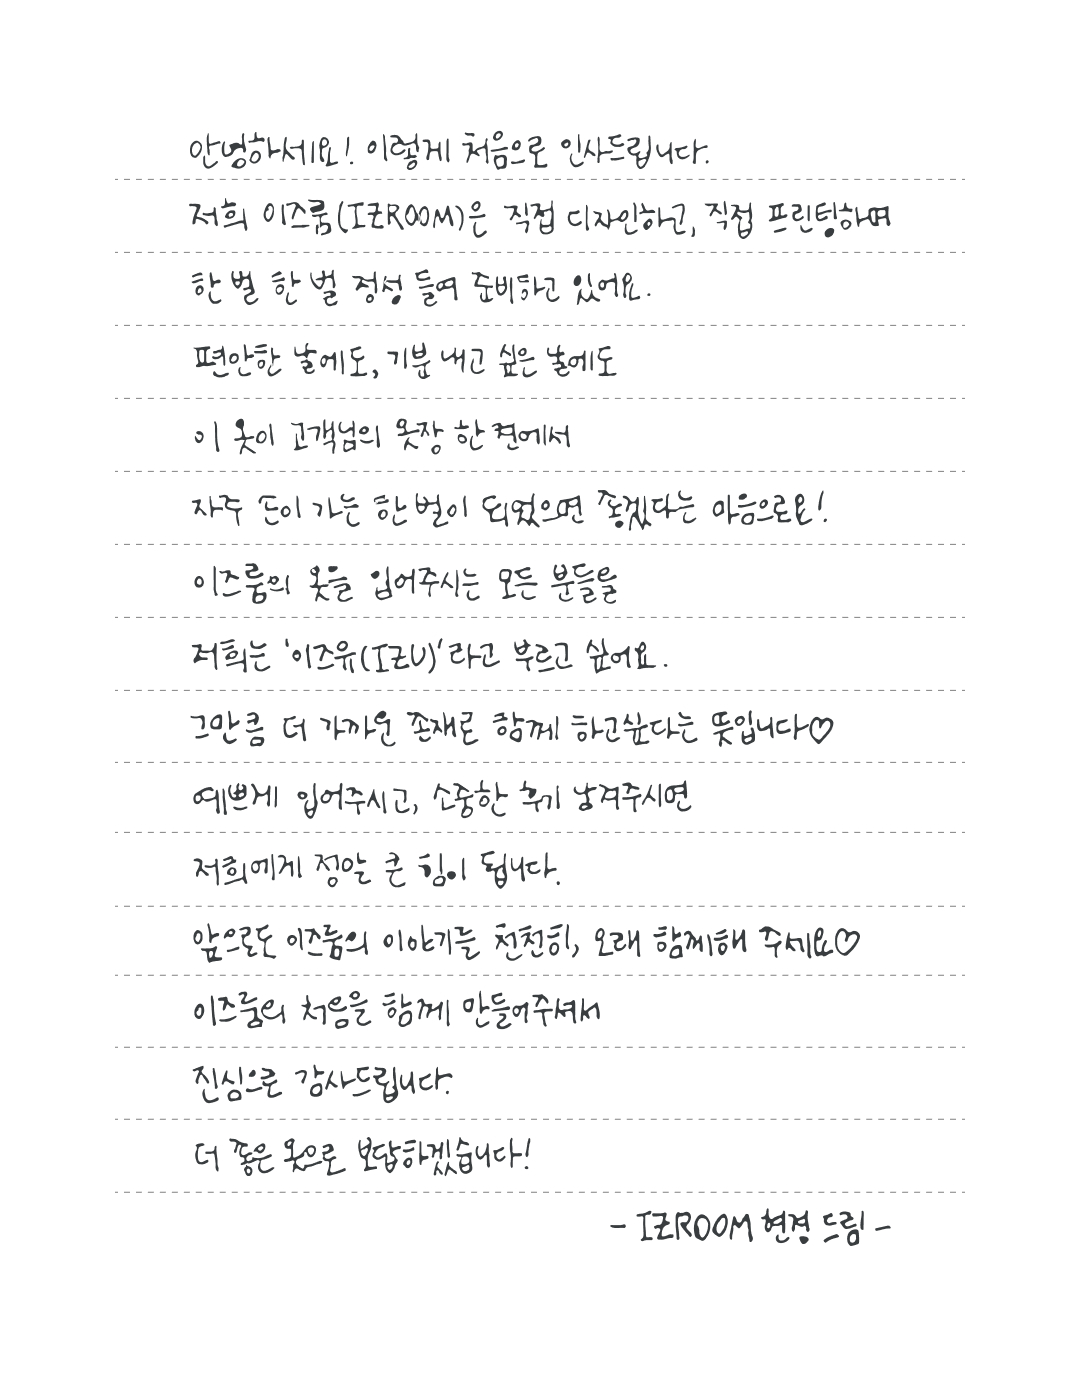 안녕하세요! 이렇게 처음으로 인사드립니다.
저희 이즈룸(IZROOM)은 직접 디자인하고, 직접 프린팅하며
한 벌 한 벌 정성 들여 준비하고 있어요.
편안한 날에도, 기분 내고 싶은 날에도
이 옷이 고객님의 옷장 한 켠에서
자주 손이 가는 한 벌이 되었으면 좋겠다는 마음으로요!
이즈룸의 옷을 입어주시는 모든 분들을
저희는 '이즈유(IZU)'라고 부르고 싶어요.
그만큼 더 가까운 존재로 함께 하고싶다는 뜻입니다♡
예쁘게 입어주시고, 소중한 후기 남겨주시면
저희에게 정말 큰 힘이 됩니다.
앞으로도 이즈룸의 이야기를 천천히, 오래 함께해 주세요♡
이즈룸의 처음을 함께 만들어주셔서
진심으로 감사드립니다.
더 좋은 옷으로 보답하겠습니다!
- IZROOM 현경 드림 -